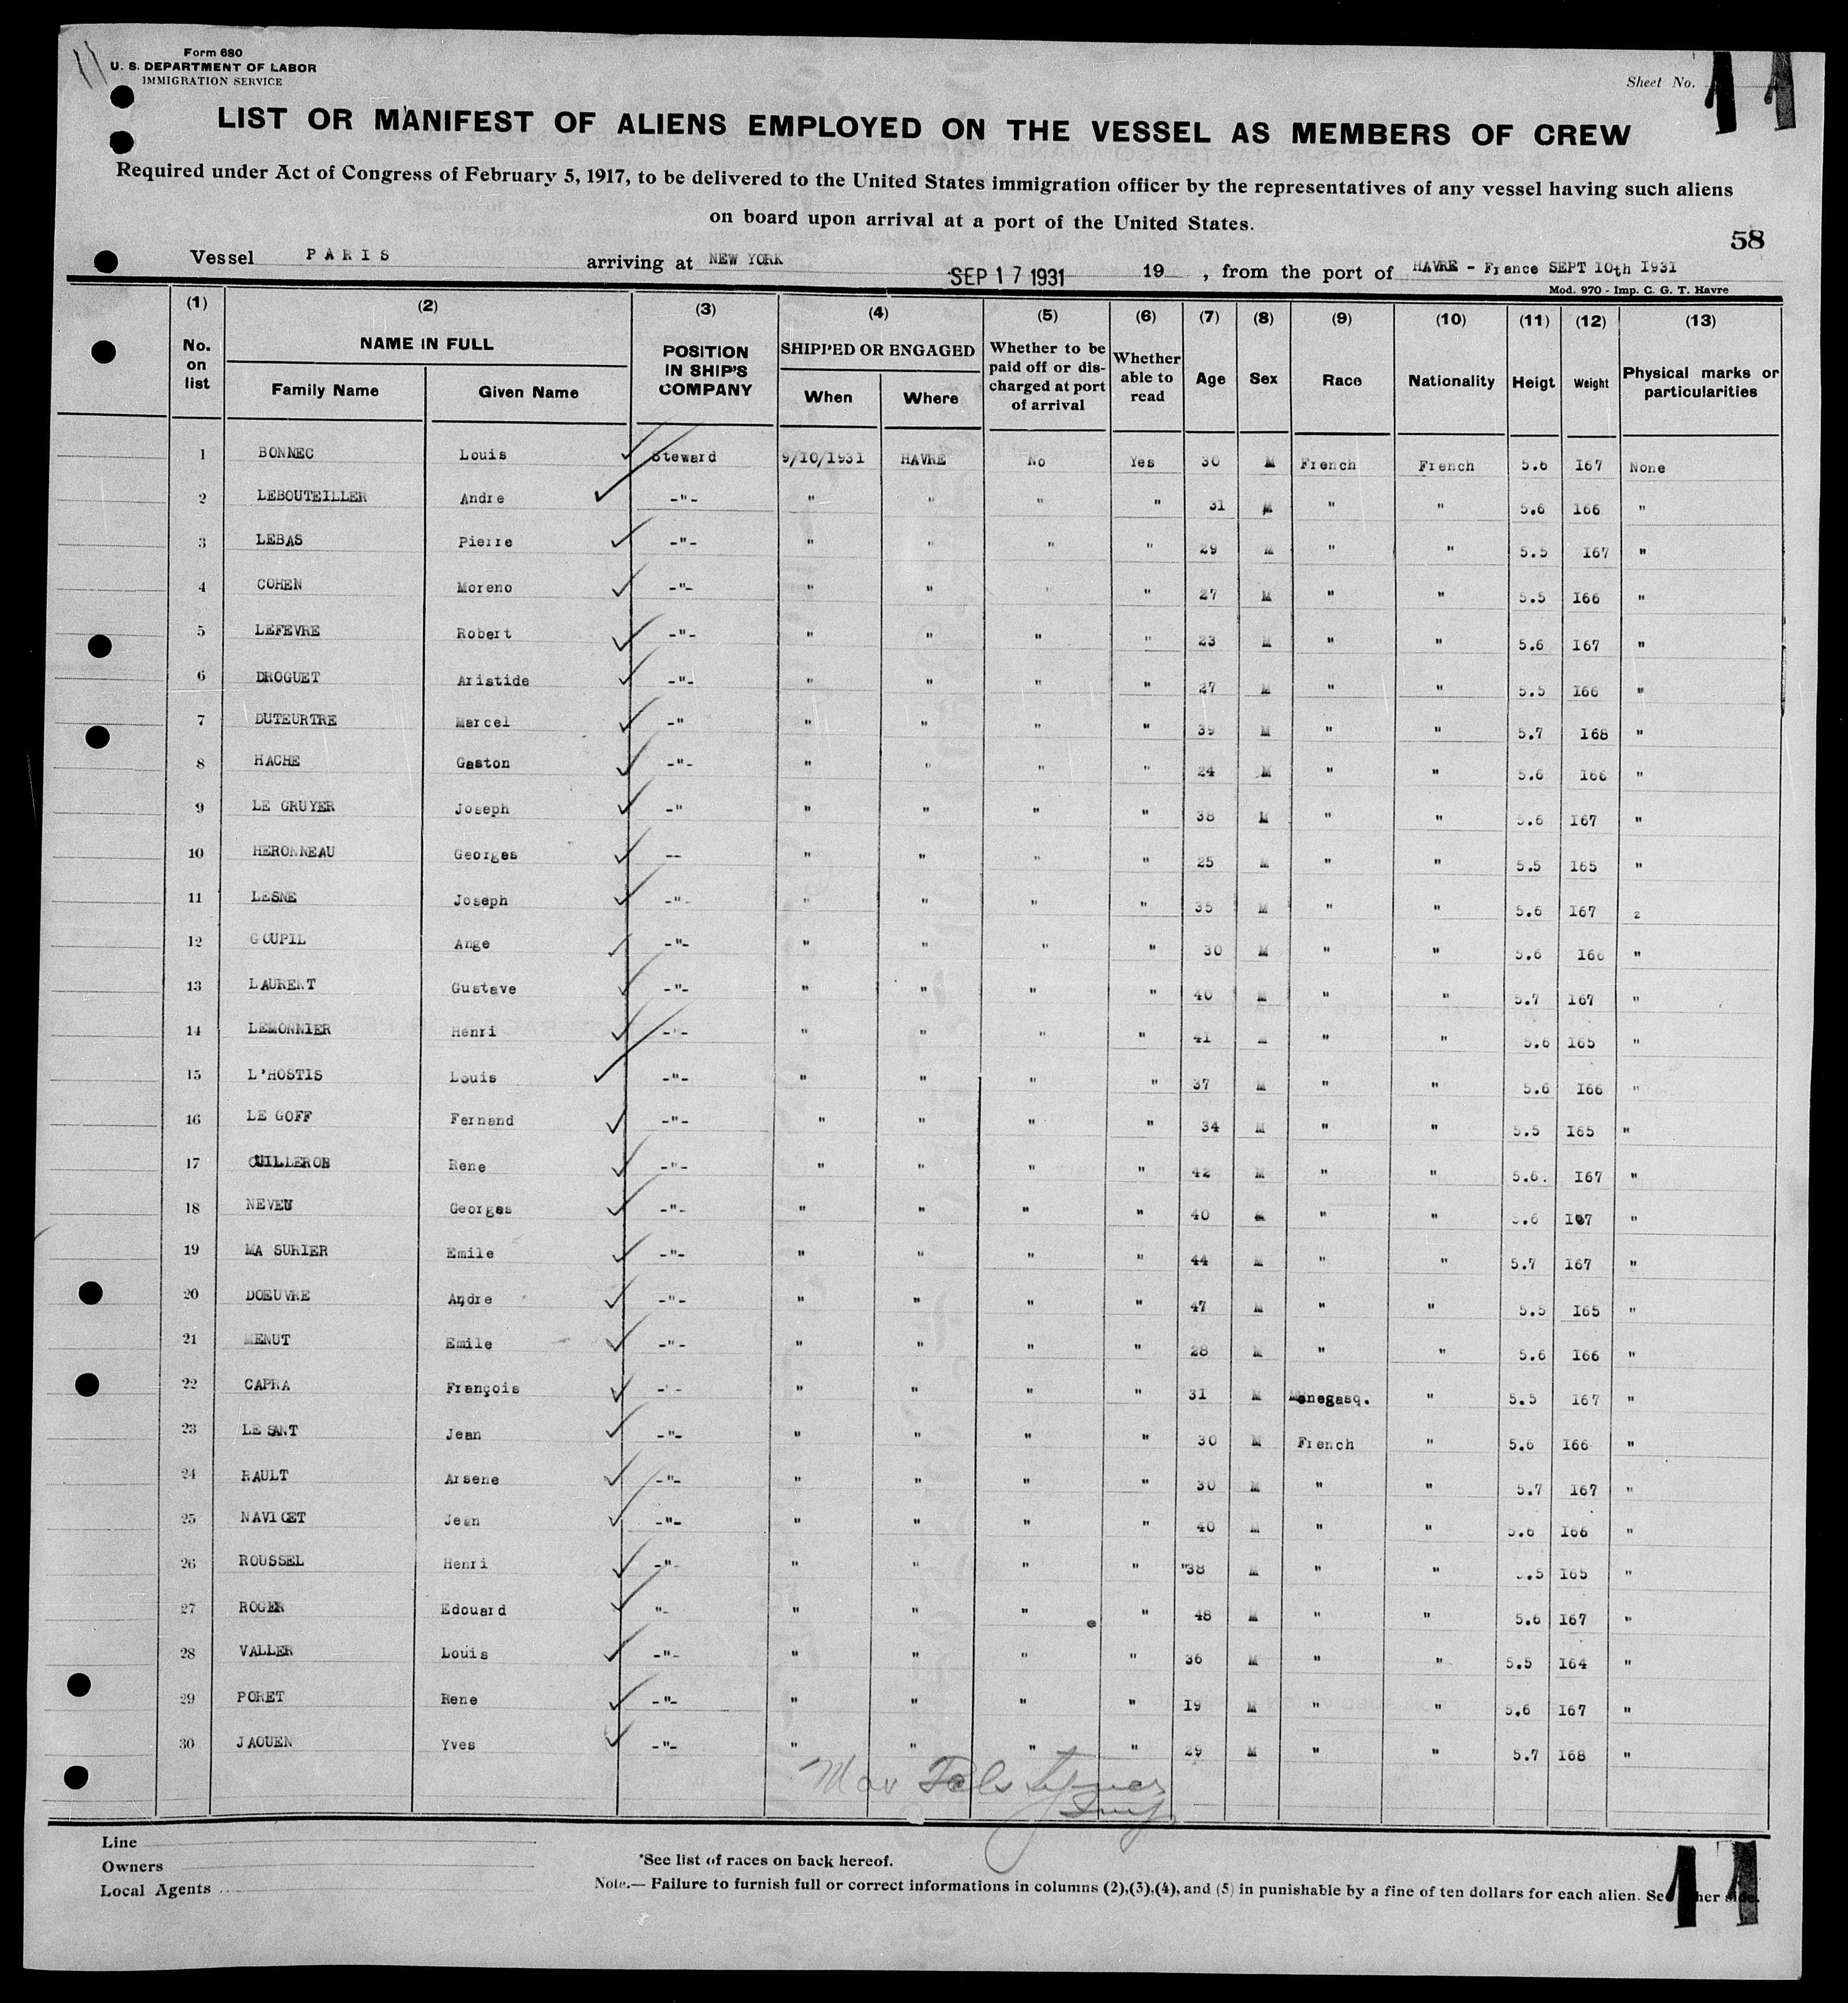 Form 680
U. S. DEPARTMENT OF LABOR
IMMIGRATION SERVICE
Sheet No. 11
LIST OR MANIFEST OF ALIENS EMPLOYED ON THE VESSEL AS MEMBERS OF CREW
Required under Act of Congress of February 5, 1917, to be delivered to the United States immigration officer by the representatives of any vessel having such aliens
on board upon arrival at a port of the United States.
58
Vessel PARIS arriving at NEW YORK SEP 17 1931 19 , from the port of HAVRE - France SEPT 10th 1931
Mod. 970 - Imp. C. G. T. Havre
(1) (2) (3) (4) (5) (6) (7) (8) (9) (10) (11) (12) (13)
No. on list NAME IN FULL Family Name Given Name POSITION IN SHIP'S COMPANY SHIPPED OR ENGAGED When Where Whether to be paid off or discharged at port of arrival Whether able to read Age Sex Race Nationality Heigt Weight Physical marks or particularities
1 BONNEC Louis Steward 9/10/1931 HAVRE No Yes 30 M French French 5.6 167 None
2 LEBOUTEILLER Andre -"- " " " " 31 M " " 5.6 166 "
3 LEBAS Pierre -"- " " " " 29 M " " 5.5 167 "
4 COHEN Moreno -"- " " " " 27 M " " 5.5 166 "
5 LEFEVRE Robert -"- " " " " 23 M " " 5.6 167 "
6 DROGUET Aristide -"- " " " " 27 M " " 5.5 166 "
7 DUTEURTRE Marcel -" " " " " 39 M " " 5.7 168 "
8 HACHE Gaston -"- " " " " 24 M " " 5.6 166 "
9 LE GRUYER Joseph -" " " " " 38 M " " 5.6 167 "
10 HERONNEAU Georges -- " " " " 25 M " " 5.5 165 "
11 LESNE Joseph -"- " " " " 35 M " " 5.6 167 z
12 GOUPIL Ange -"- " " " " 30 M " " 5.6 166 "
13 LAURENT Gustave -"- " " " " 40 M " " 5.7 167 "
14 LEMONNIER Henri -"- " " " " 41 M " " 5.6 165 "
15 L'HOSTIS Louis -"- " " " " 37 M " " 5.6 166 "
16 LE GOFF Fernand -"- " " " " 34 M " " 5.5 165 "
17 Rene -"- " " " " 42 M " " 5.6. 167 "
18 NEVEU Georges -"- " " " " 40 M " " 5.6 167 "
19 MA SURIER Emile -"- " " " " 44 M " " 5.7 167 "
20 DOEUVRE Andre -"- " " " " 47 M " " 5.5 165 "
21 MENUT Emile -"- " " " " 28 M " " 5.6 166 "
22 CAPRA François -"- " " " " 31 M Monegasq. " 5.5 167 "
23 LE SANT Jean -"- " " " " 30 M French " 5.6 166 "
24 RAULT Arsene -"- " " " " 30 M " " 5.7 167 "
25 NAVICET Jean -"- " " " " 40 M " " 5.6 166 "
26 ROUSSEL Henri -"- " " " " "38 M " " 5.5 165 "
27 ROGER Edouard "- " " " " 48 M " " 5.6 167 "
28 VALLER Louis -"- " " " " 36 M " " 5.5 164 "
29 PORET Rene -"- " " " " 19 M " " 5.6 167 "
30 JAOUEN Yves -"- " " " " 29 M " " 5.7 168 "
Line
Owners
Local Agents
*See list of races on back hereof.
Note.— Failure to furnish full or correct informations in columns (2),(3),(4), and (5) in punishable by a fine of ten dollars for each alien. See other side.
11